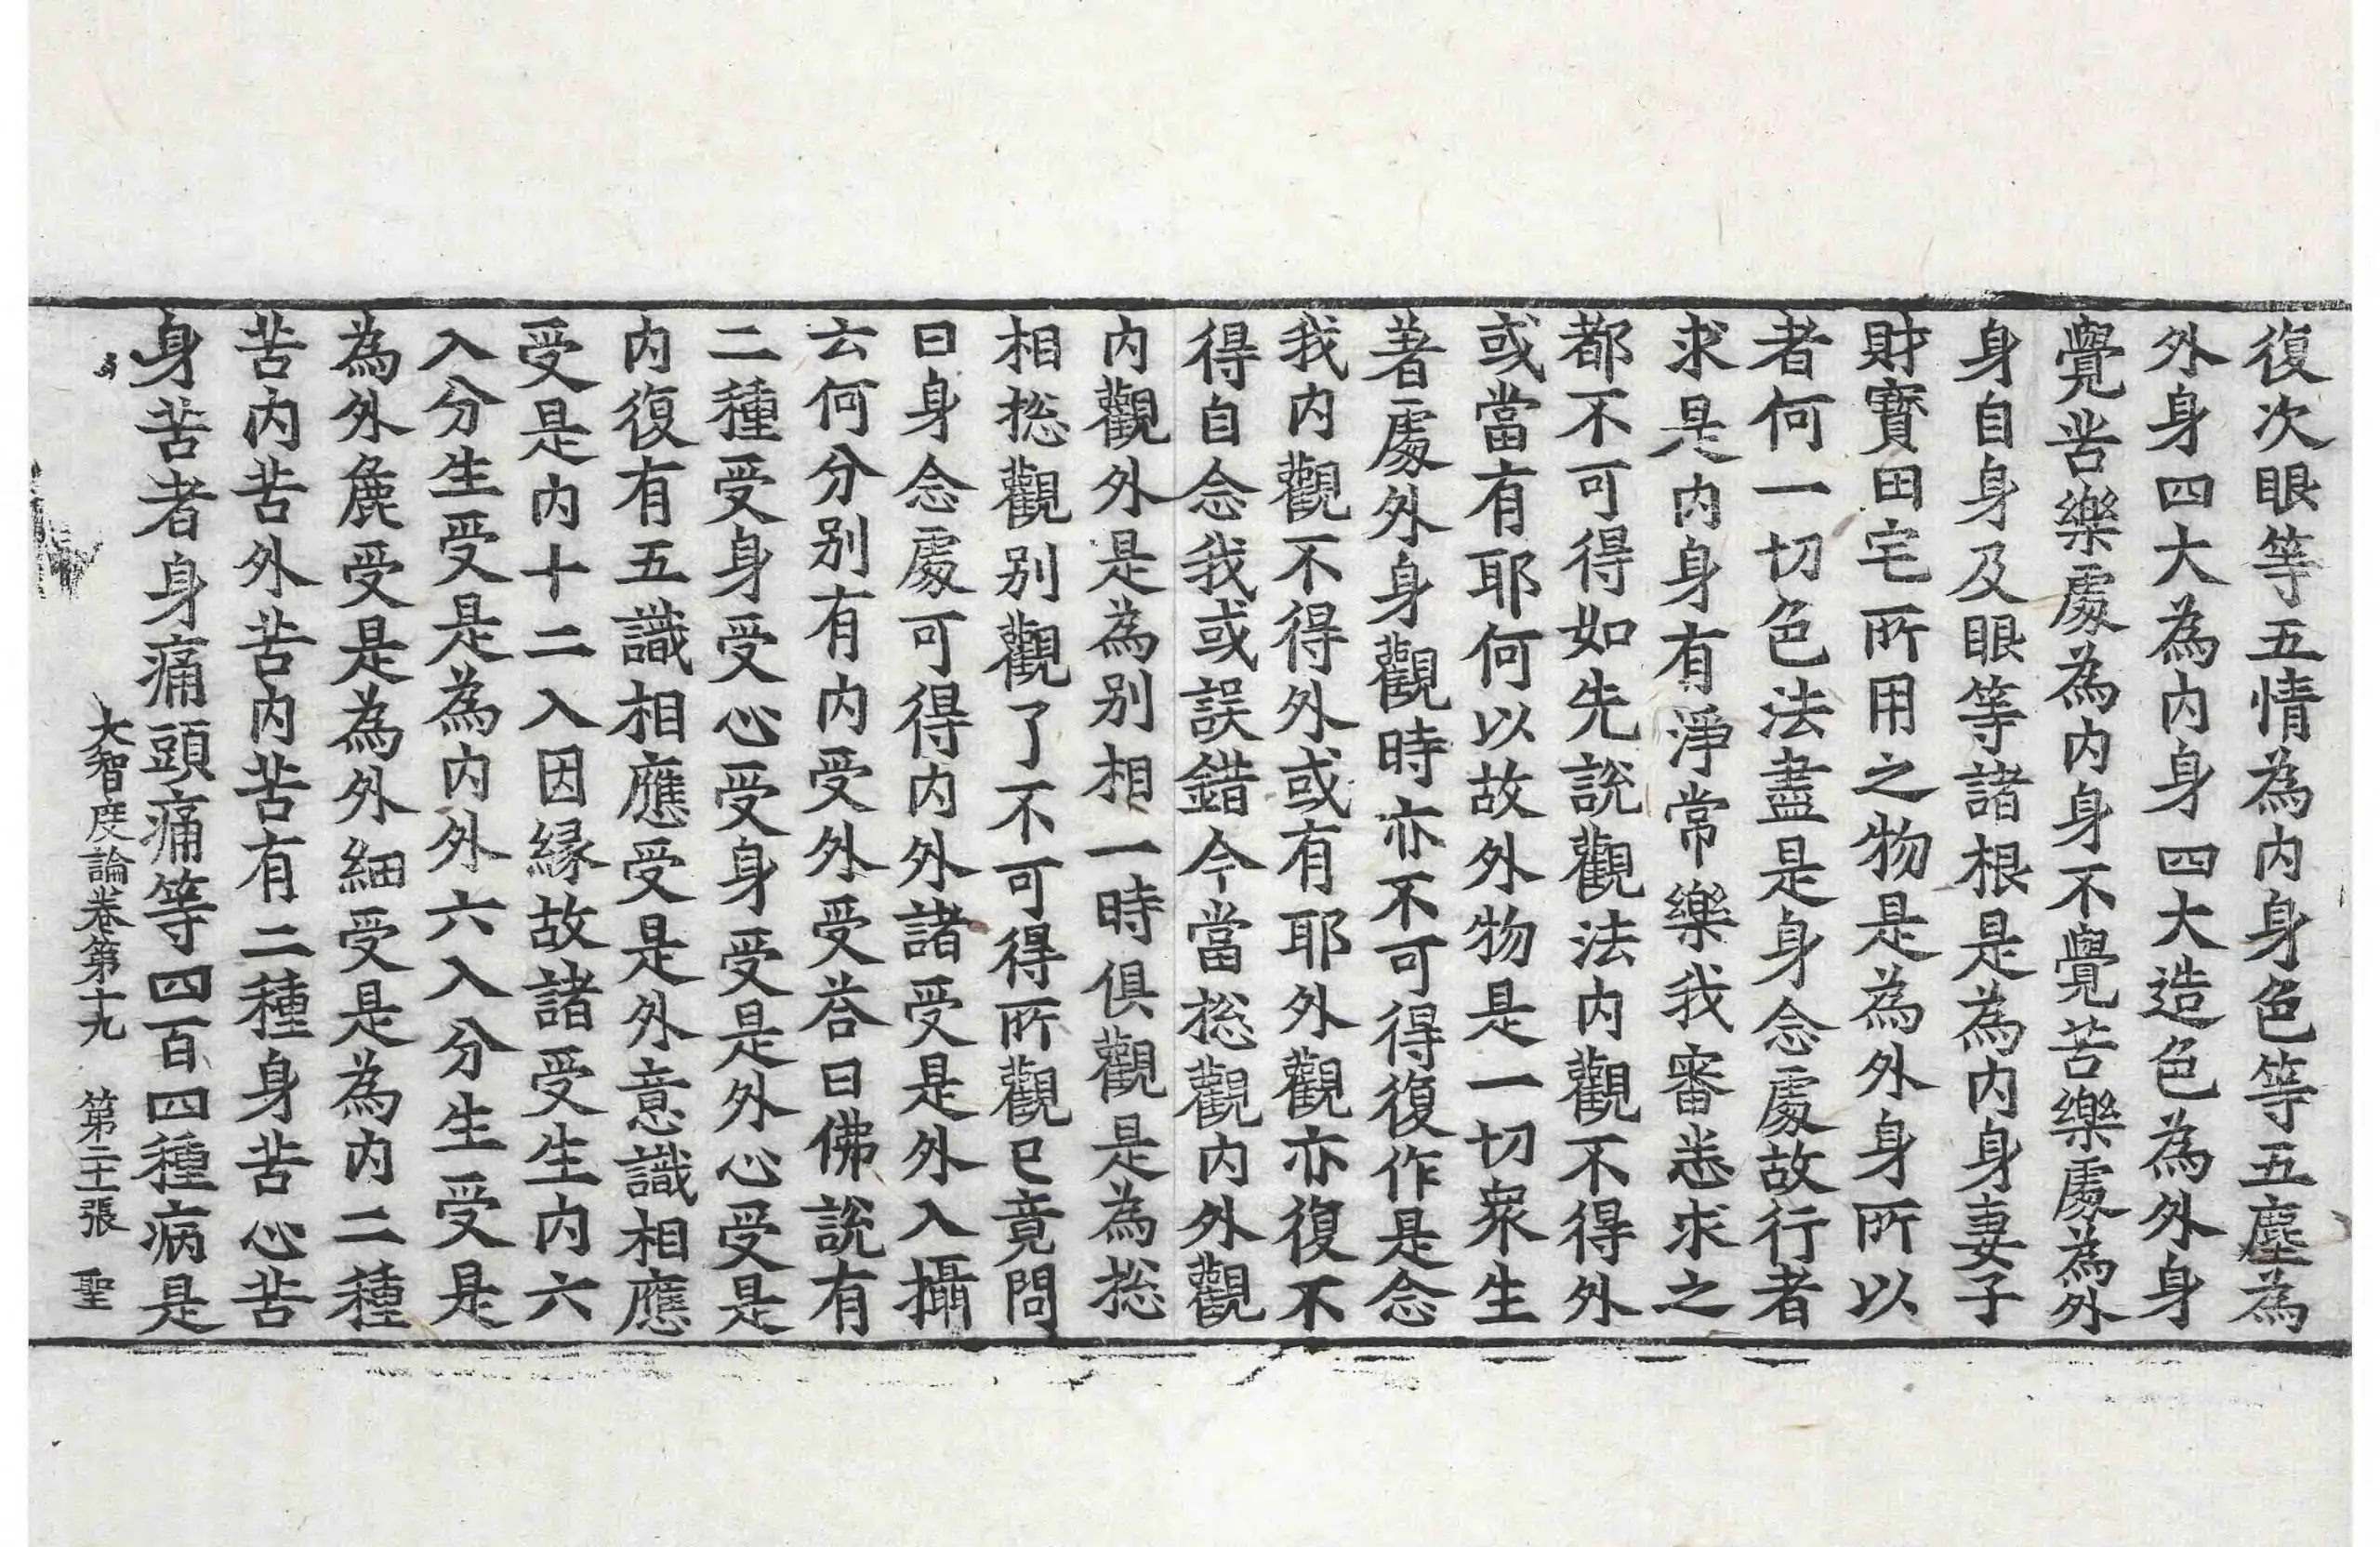 復次眼等五情為内身色等五塵為
外身四大為内身四大造色為外身
覺苦樂處為内身不覺苦樂處為外
身自身及眼等諸根是為内身妻子
財寶田宅所用之物是為外身所以
者何一切色法盡是身念處故行者
求是内身有淨常樂我審悉求之
都不可得如先說觀法内觀不得外
或當有耶何以故外物是一切衆生
著處外身觀時亦不可得復作是念
我内觀不得外或有耶外觀亦復不
得自念我或誤錯今當捴觀内外觀
内觀外是為别相一時俱觀是為捴
相捴觀别觀了不可得所觀已竟問
曰身念處可得内外諸受是外入攝
云何分别有内受外受荅曰佛說有
二種受身受心受身受是外心受是
内復有五識相應受是外意識相應
受是内十二入因縁故諸受生内六
入分生受是為内外六入分生受是
為外麁受是為外細受是為内二種
苦内苦外苦内苦有二種身苦心苦
身苦者身痛頭痛等四百四種病是
大智度論卷第十九 第二十張 聖